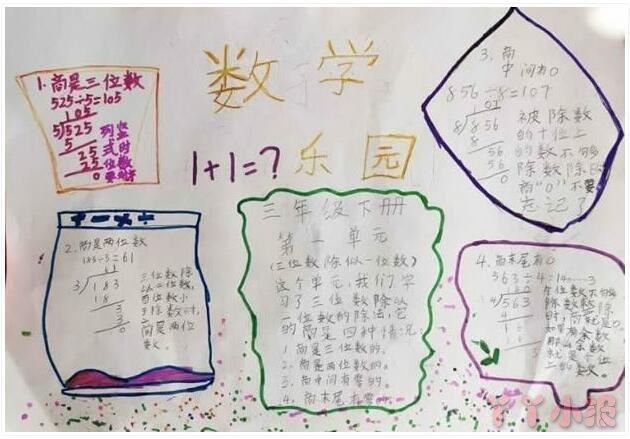 数学
乐园
1+1=?
1.商是三位数
525÷5=105
105
5)525
5
25
25
0
列竖
式时
位数
要对
2.商是两位数
183÷3=61
61
3)183
18
3
3
0
三位数除
以一位数,
百位数小
于除数时,
商是两位
数。
三年级下册
第一单元
(三位数除似一位数)
这个单元,我们学
习了三位数除以
一位数的除法,它
的商是四种情况:
1.商是三位数的。
2.商是两位数的。
3.商中间有零的。
4.商末尾有零
3.商
中间有0
856÷8=107
107
8)856
8
56
56
0
被除数
的十位上
的数不够
除数除时
商"0"不要
忘记了
4.商末尾有0
563÷4=14……3
4)563
4
16
16
3
个位数不够
除数除
时,商就是0。
如果有余数
那么余数
就是个位
上的数。
丫丫小报